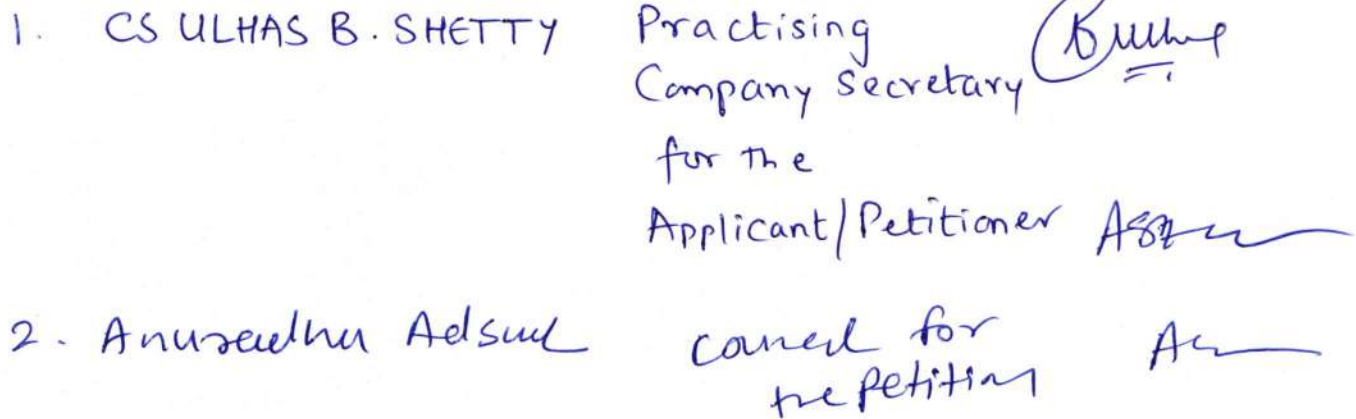 1. CS ULHAS B. SHETTY Practising
Company Secretary
for the
Applicant/Petitioner
2. Anuradha Adsul counsel for
the petition